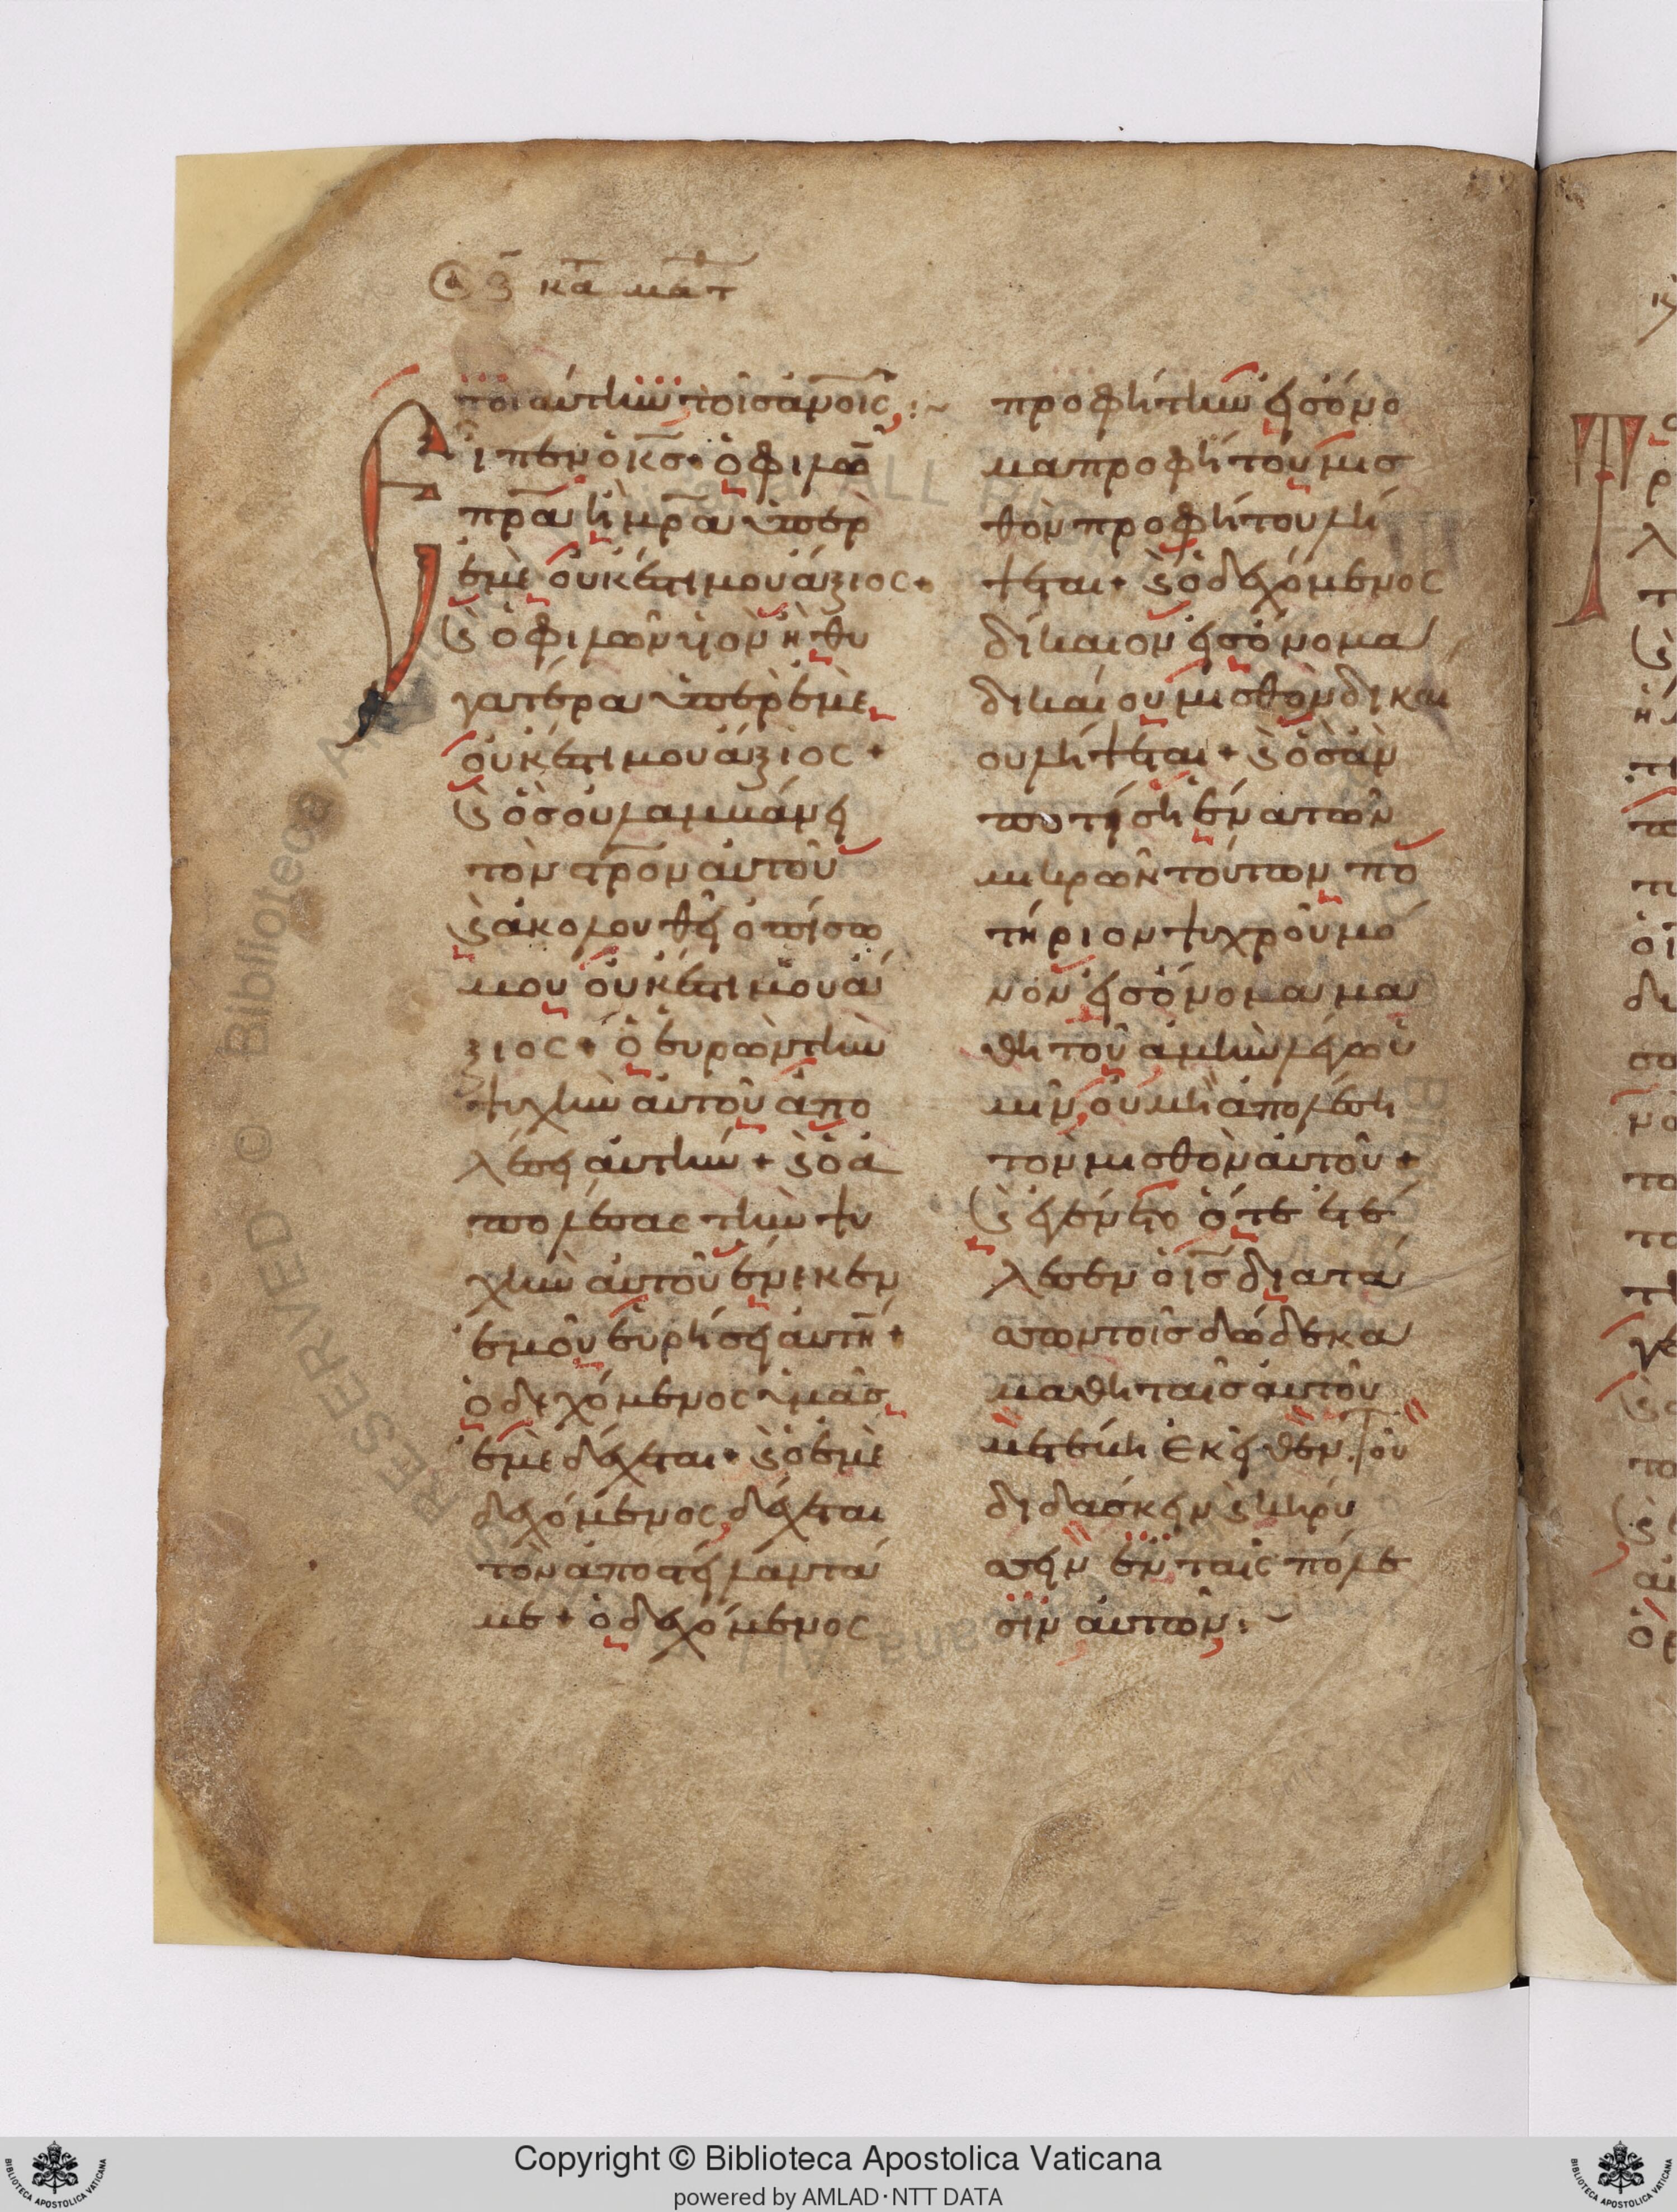 ζ κα ματ
ποι αυτὴν τοῖς ἀνοις :~
Ειπεν ὁ κς + ὁ φιλῶ
πρα ἢ μρα ὑπὲρ
ἐμὲ οὐκ ἔστι μου ἄξιος +
ϗ ὁ φιλῶν υἱὸν ἢ θυ
γατέρα ὑπὲρ ἐμὲ
οὐκ ἔστι μου ἄξιος +
ϗ ὃς οὐ λαμβάνει
τὸν στρον αὐτοῦ
ϗ ἀκολουθεῖ ὀπίσω
μου οὐκ ἔστι μου ἄ
ξιος + ὁ εὑρὼν τὴν
ψυχὴν αὐτοῦ ἀπο
λέσει αὐτήν + ϗ ὁ ἀ
πολέσας τὴν ψυ
χὴν αὐτοῦ ἕνεκεν
ἐμοῦ εὑρήσει αὐτήν +
ὁ δεχόμενος ὑμᾶς
ἐμὲ δέχεται + ϗ ὁ ἐμὲ
δεχόμενος δέχεται
τὸν ἀποστείλαντά
με + ὁ δεχόμενος
προφήτην εἰς ὄνο
μα προφήτου μισ
θὸν προφήτου λή
ψεται + ϗ ὁ δεχόμενος
δίκαιον εἰς ὄνομα
δικαίου μισθὸν δικαι
ου λήψεται + ϗ ὃς ἂν
ποτίσῃ ἕνα τῶν
μικρῶν τούτων πο
τήριον ψυχροῦ μό
νον εἰς ὄνομα μα
θητοῦ ἀμὴν λέγω ὑ
μῖν οὐ μὴ ἀπολέσῃ
τὸν μισθὸν αὐτοῦ +
ϗ ἐγένετο ὅτε ἐτέ
λεσεν ὁ ις διατά
σσων τοῖς δώδεκα
μαθηταῖς αὐτοῦ
μετέβη ἐκεῖθεν τοῦ
διδάσκειν ϗ κηρύ
σσειν ἐν ταῖς πόλε
σιν αὐτῶν :~
Copyright © Biblioteca Apostolica Vaticana
powered by AMLAD·NTT DATA